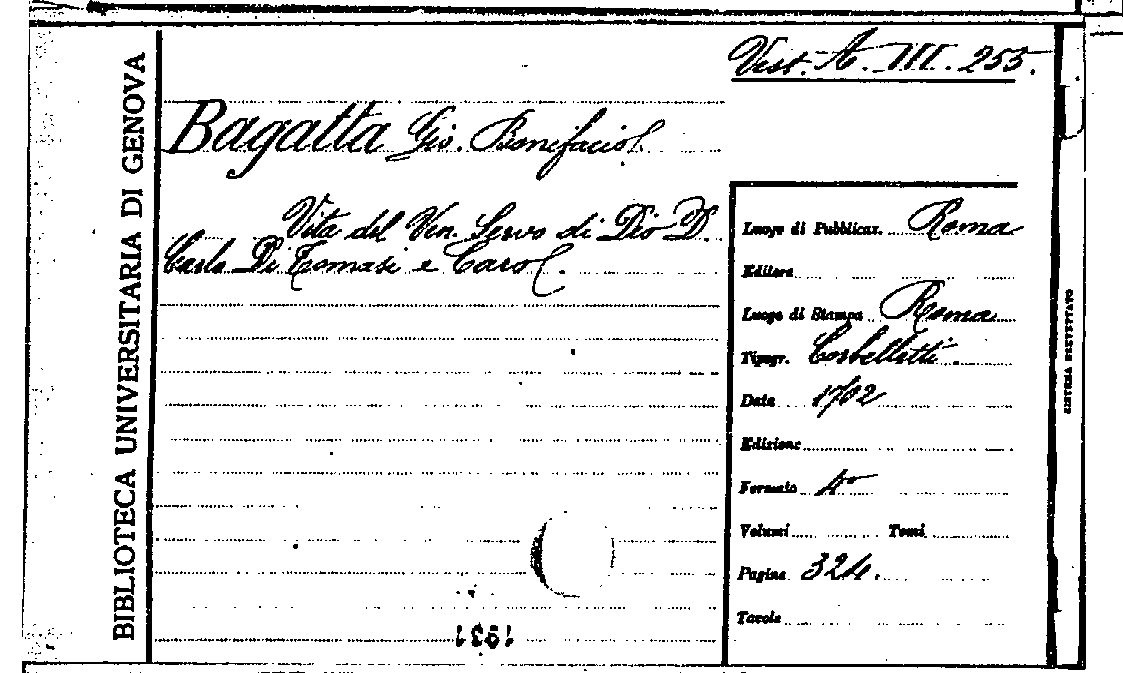 BIBLIOTECA UNIVERSITARIA DI GENOVA
Vist. A. III. 255.
Bagatta Gio. Bonifacio
Vita del Ven. Servo di Dio D.
Carlo Di Tomasi e Caro
Luogo di Pubblicaz. Roma
Editore
Luogo di Stampa Roma
Tipogr. Corbelletti.
Data 1702
Edizione
Formato 4°
Volumi Tomi
Pagine 324.
Tavole
SISTEMA BREVETTATO
1931